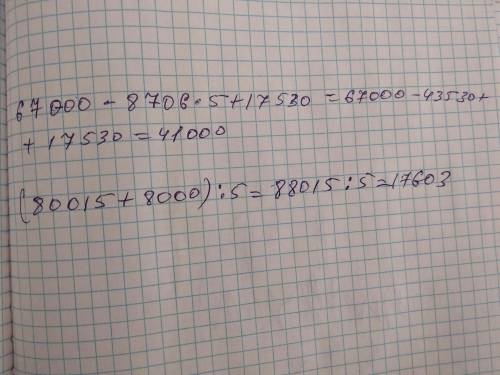 67000 - 8706 · 5 + 17530 = 67000 - 43530 +
+ 17530 = 41000
(80015 + 8000) : 5 = 88015 : 5 = 17603